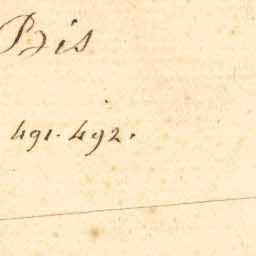 Bis
491. 492.